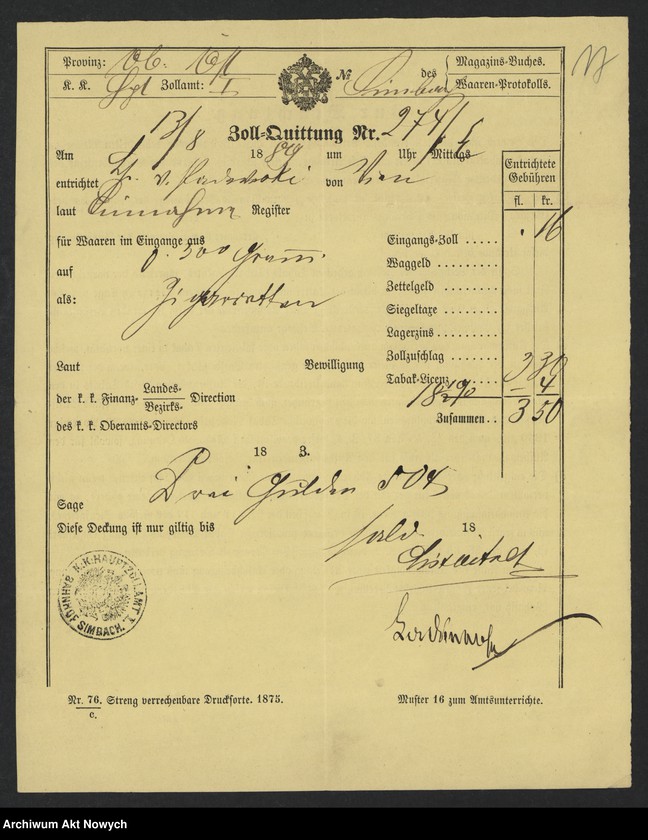 Provinz: Ob. Öst
des
Magazins-Buches.
K. K. Hpt Zollamt: I
№
Simbach
Waaren-Protokolls.
13/8
Zoll-Quittung Nr. 274/
Am
18 um
Uhr Mittags
entrichtet H. v. Paderewski von Wien
Entrichtete Gebühren
laut Einnahms Register
fl. kr.
für Waaren im Eingange aus
Eingangs-Zoll . 16
auf 0.500 Gramm
Waggeld
Zettelgeld
als: Zigaretten
Siegeltaxe
Lagerzins
Zollzuschlag 3 30
Laut
Bewilligung
Tabak-Licenz – 4
der k. k. Finanz- Landes- Bezirks- Direction
Zusammen 3 50
des k. k. Oberamts-Directors
18 3.
Sage Drei Gulden 50 x
Diese Deckung ist nur giltig bis
18
K.K. HAUPTZOLLAMT I. BAHNHOF SIMBACH.
Nr. 76. Streng verrechenbare Druckforte. 1875.
c.
Muster 16 zum Amtsunterrichte.
Archiwum Akt Nowych